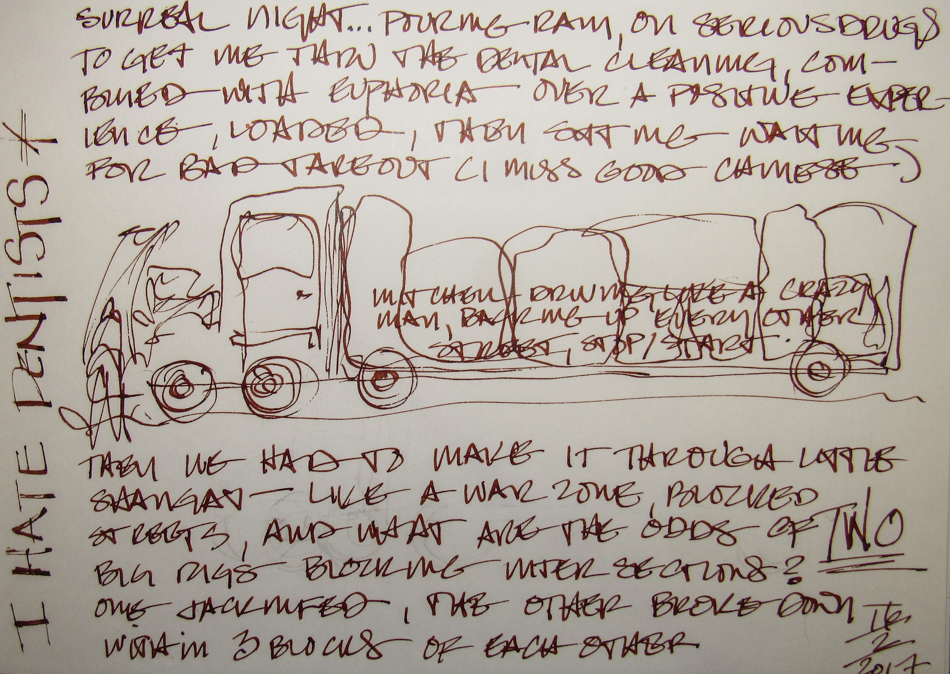 SURREAL NIGHT... POURING RAIN, ON SERIOUS DRUGS
TO GET ME THRU THE DENTAL CLEANING, COM-
BINED WITH EUPHORIA OVER A POSITIVE EXPER-
IENCE, LOADED, THEN SITTING WAITING
FOR BAD TAKEOUT (I MISS GOOD CHINESE)
I HATE DENTISTS
MITCHELL DRIVING LIKE A CRAZY
MAN, BACKING UP EVERY OTHER
STREET, STOP/START.
THEN WE HAD TO MAKE IT THROUGH LITTLE
SHANGAI - LIKE A WAR ZONE, BLOCKED
STREETS, AND WHAT ARE THE ODDS OF TWO
BIG RIGS BLOCKING INTERSECTIONS?
ONE JACKNIFED, THE OTHER BROKE DOWN
WITHIN 3 BLOCKS OF EACH OTHER
2
2017